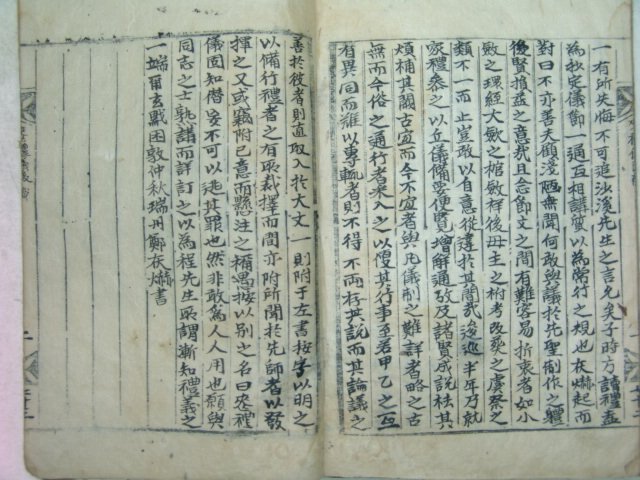 一有所失悔不可追沙溪先生之言允矣子時方讀禮盍
為抄定儀節一通互相講質以為常行之規也秋爀起而
對曰不亦善夫顧淺陋無聞何敢與議於先聖制作之軆
後賢損益之意哉且念節文之間有難容易折衷者如小
斂之環絰大斂之棺斂祥後母主之祔考改葬之虞祭之
類不一而止豈敢以自意從違於其間哉後巡半年乃就
家禮參之以丘儀備要便覽增解通攷及諸賢成說祛其
煩補其闕古宜而今不宜者與凡儀制之難詳者略之古
無而今俗之通行者采入之以便其行事至若甲乙之互
有異同而難以專輒者則不得不兩存其說而其論議之
善於彼者則直取入於大文一則附于左書按字以明之
以備行禮者之有取裁擇而間亦附所聞於先師者以發
揮之又或竊附已意而懸注之稱愚按以別之名曰禮
儀固知僭妄不可以逃其罪也然非敢爲人人用也願與
同志之士孰講而訂之以為程先生所謂漸知禮義之
一端爾玄黓困敦仲秋瑞丹鄭秋爀書